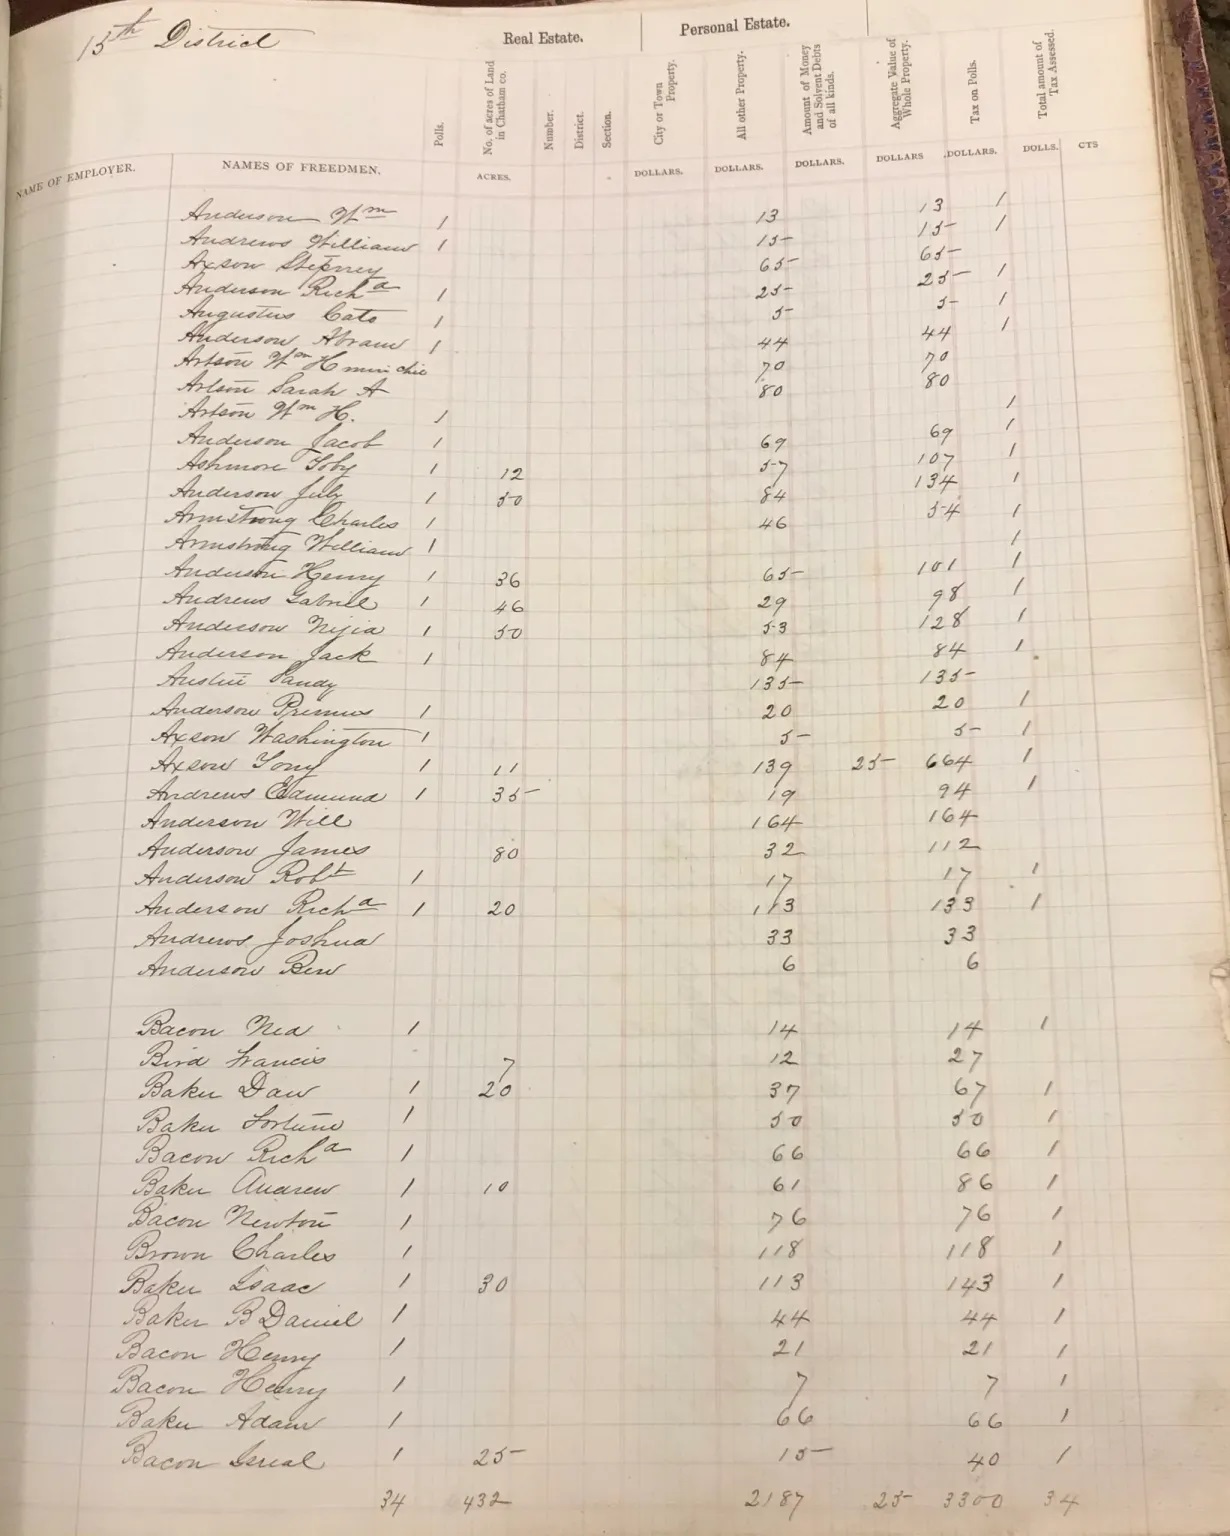 15th District
Real Estate. Personal Estate.
NAME OF EMPLOYER. NAMES OF FREEDMEN. Polls. No. of acres of Land in Chatham co. Number. District. Section. City or Town Property. All other Property. Amount of Money and Solvent Debts of all kinds. Aggregate Value of Whole Property. Tax on Polls. Total amount of Tax Assessed.
ACRES. DOLLARS. DOLLARS. DOLLARS. DOLLARS DOLLARS. DOLLS. CTS
Anderson Wm 1 13 13 1
Andrews William 1 15 15 1
Axson Stepney 65 65
Anderson Richd 1 25 25 1
Augustus Cato 1 5 5 1
Anderson Abram 1 44 44 1
Artson Wm H 70 70
Artson Sarah A 80 80
Artson Wm H. 1 1
Anderson Jacob 1 69 69 1
Ashmore Toby 1 12 57 107 1
Anderson July 1 50 84 134 1
Armstrong Charles 1 46 54 1
Armstrong William 1 1
Anderson Henry 1 36 65 101 1
Andrews Gabriel 1 46 29 98 1
Anderson 1 50 53 128 1
Anderson Jack 1 84 84 1
Austin Sandy 135 135
Anderson Primus 1 20 20 1
Axson Washington 1 5 5 1
Axson Tony 1 11 139 25 664 1
Andrews Edmund 1 35 19 94 1
Anderson Will 164 164
Anderson James 80 32 112
Anderson Robt 1 17 17 1
Anderson Richd 1 20 113 133 1
Andrews Joshua 33 33
Anderson Ben 6 6
Bacon Ned 1 14 14 1
Bird Francis 7 12 27
Baker Dan 1 20 37 67 1
Baker Fortune 1 50 50 1
Bacon Richd 1 66 66 1
Baker Andrew 1 10 61 86 1
Bacon Newton 1 76 76 1
Brown Charles 1 118 118 1
Baker Isaac 1 30 113 143 1
Baker B Daniel 1 44 44 1
Bacon Henry 1 21 21 1
Bacon Henry 1 7 7 1
Baker Adam 1 66 66 1
Bacon Isreal 1 25 15 40 1
34 432 2187 25 3300 34